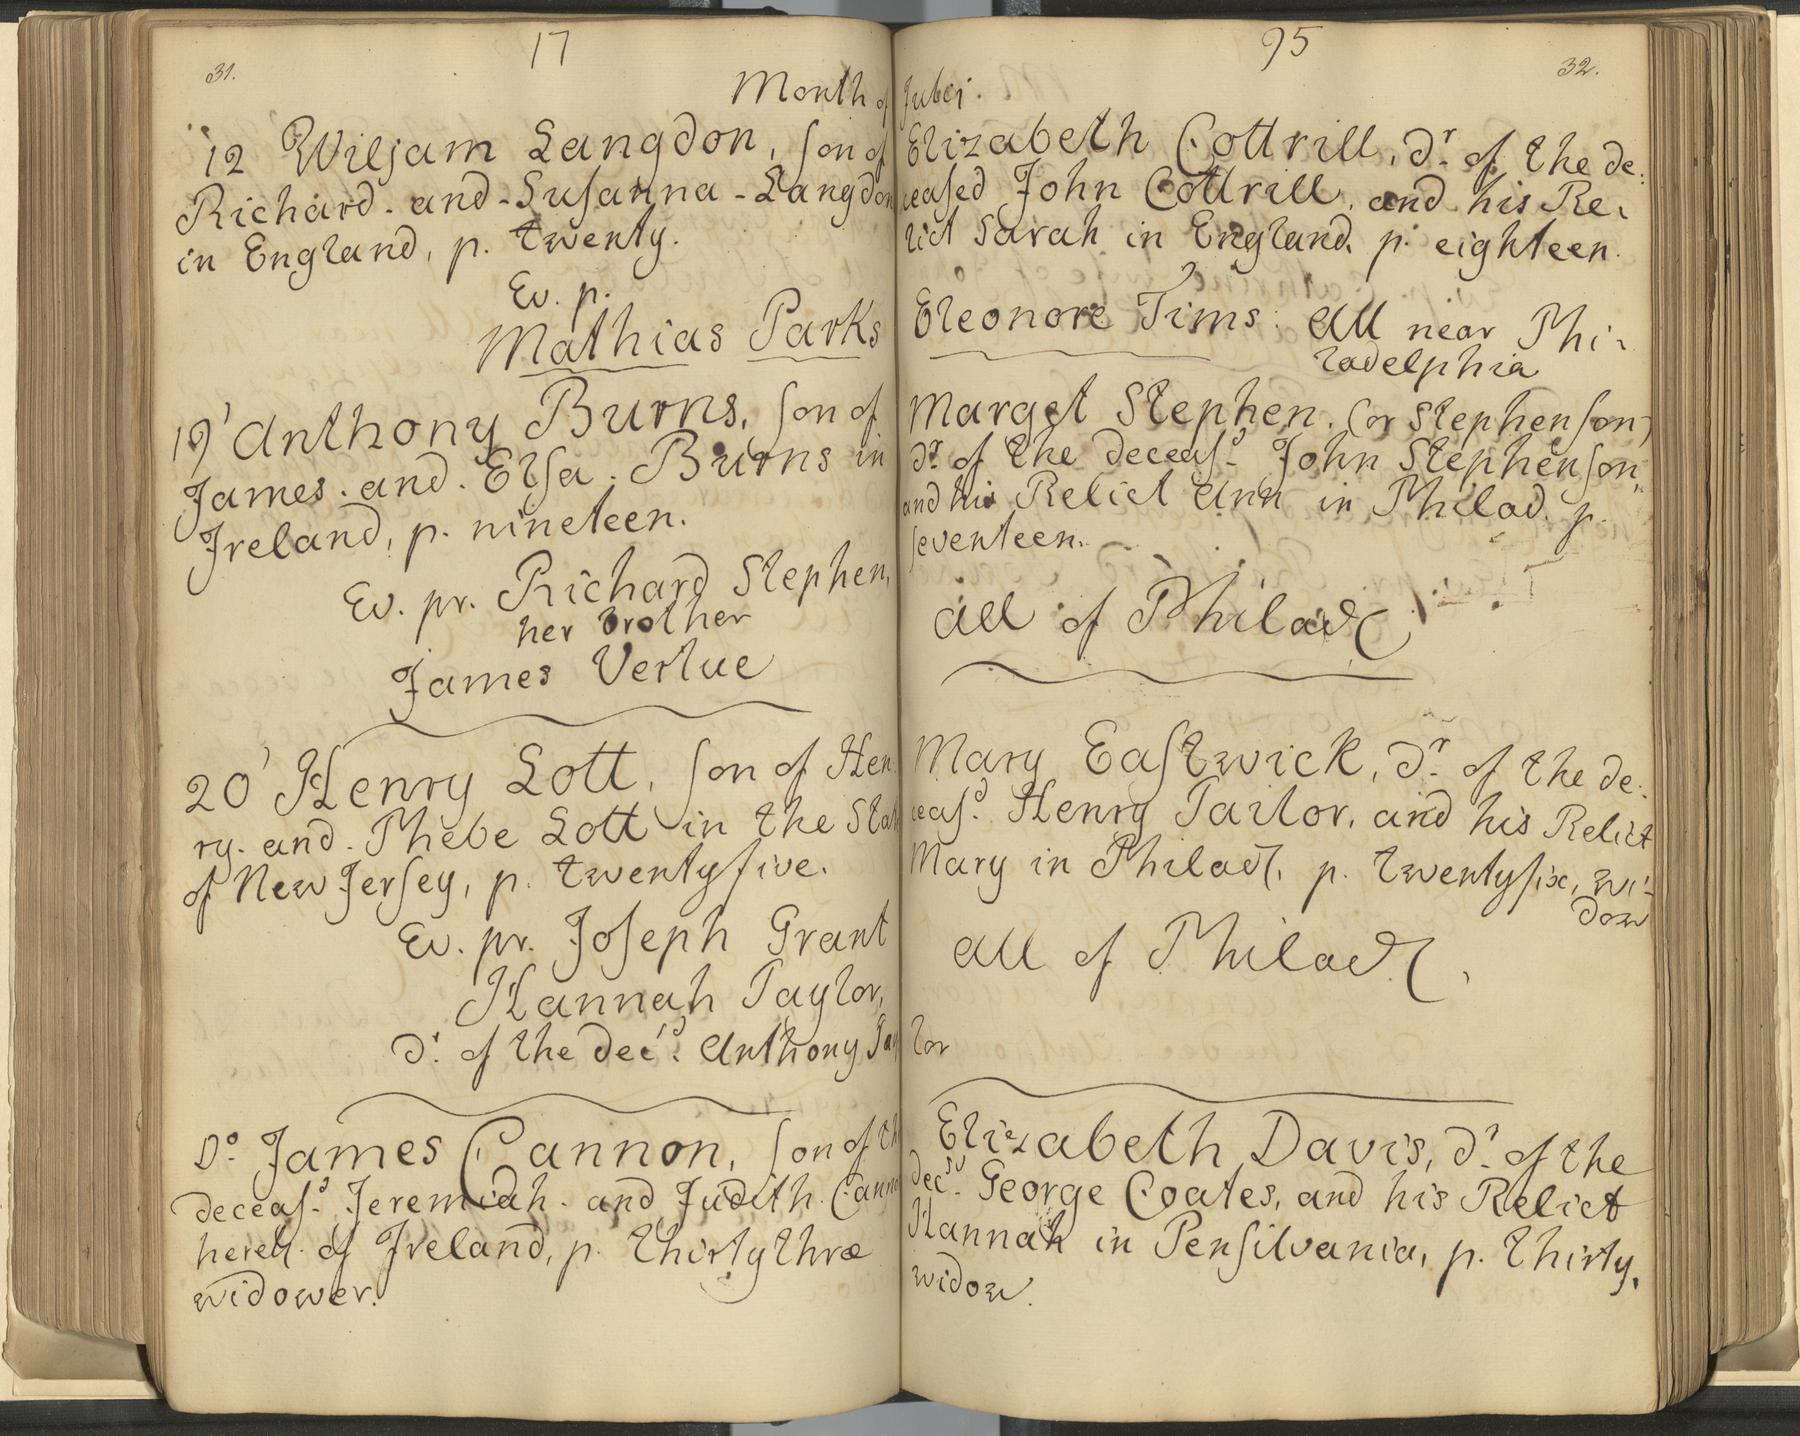 17
31.
Month of
12 Wiljam Langdon, son of
Richard - and - Susanna - Langdon
in England, p. twenty.
Ev. p.
Mathias Parks
19 Anthony Burns, son of
James . and . Elsa . Burns in
Ireland, p. nineteen.
Ev. pr. Richard Stephen,
her brother
James Vertue
20 Henry Lott, son of Hen
ry. and . Phebe Lott in the State
of New Jersey, p. twentyfive.
Ev. pr. Joseph Grant
Hannah Taylor,
dr. of the decd. Anthony Tay
Do. James Cannon, son of the
deceasd. Jeremiah . and Judith Cann
heretf. of Ireland, p. thirty thre
widower.
95
32.
Elizabeth Cottrill, dr. of the de:
ceased John Cottrill, and his Re:
lict Sarah in England, p. eighteen.
Eleonore Tims. All near Phi:
ladelphia
Marget Stephen, (or Stephenson)
dr. of the deceasd. John Stephenson,
and his Relict Ann in Philad. p.
seventeen.
all of Philad
Mary Eastwick, dr. of the de:
ceasd. Henry Tailor, and his Relict
Mary in Philad, p. twentysix, wi:
dow
all of Philad
lor
Elizabeth Davis, dr. of the
decsd. George Coates, and his Relict
Hannah in Pensilvania, p. thirty,
widow.